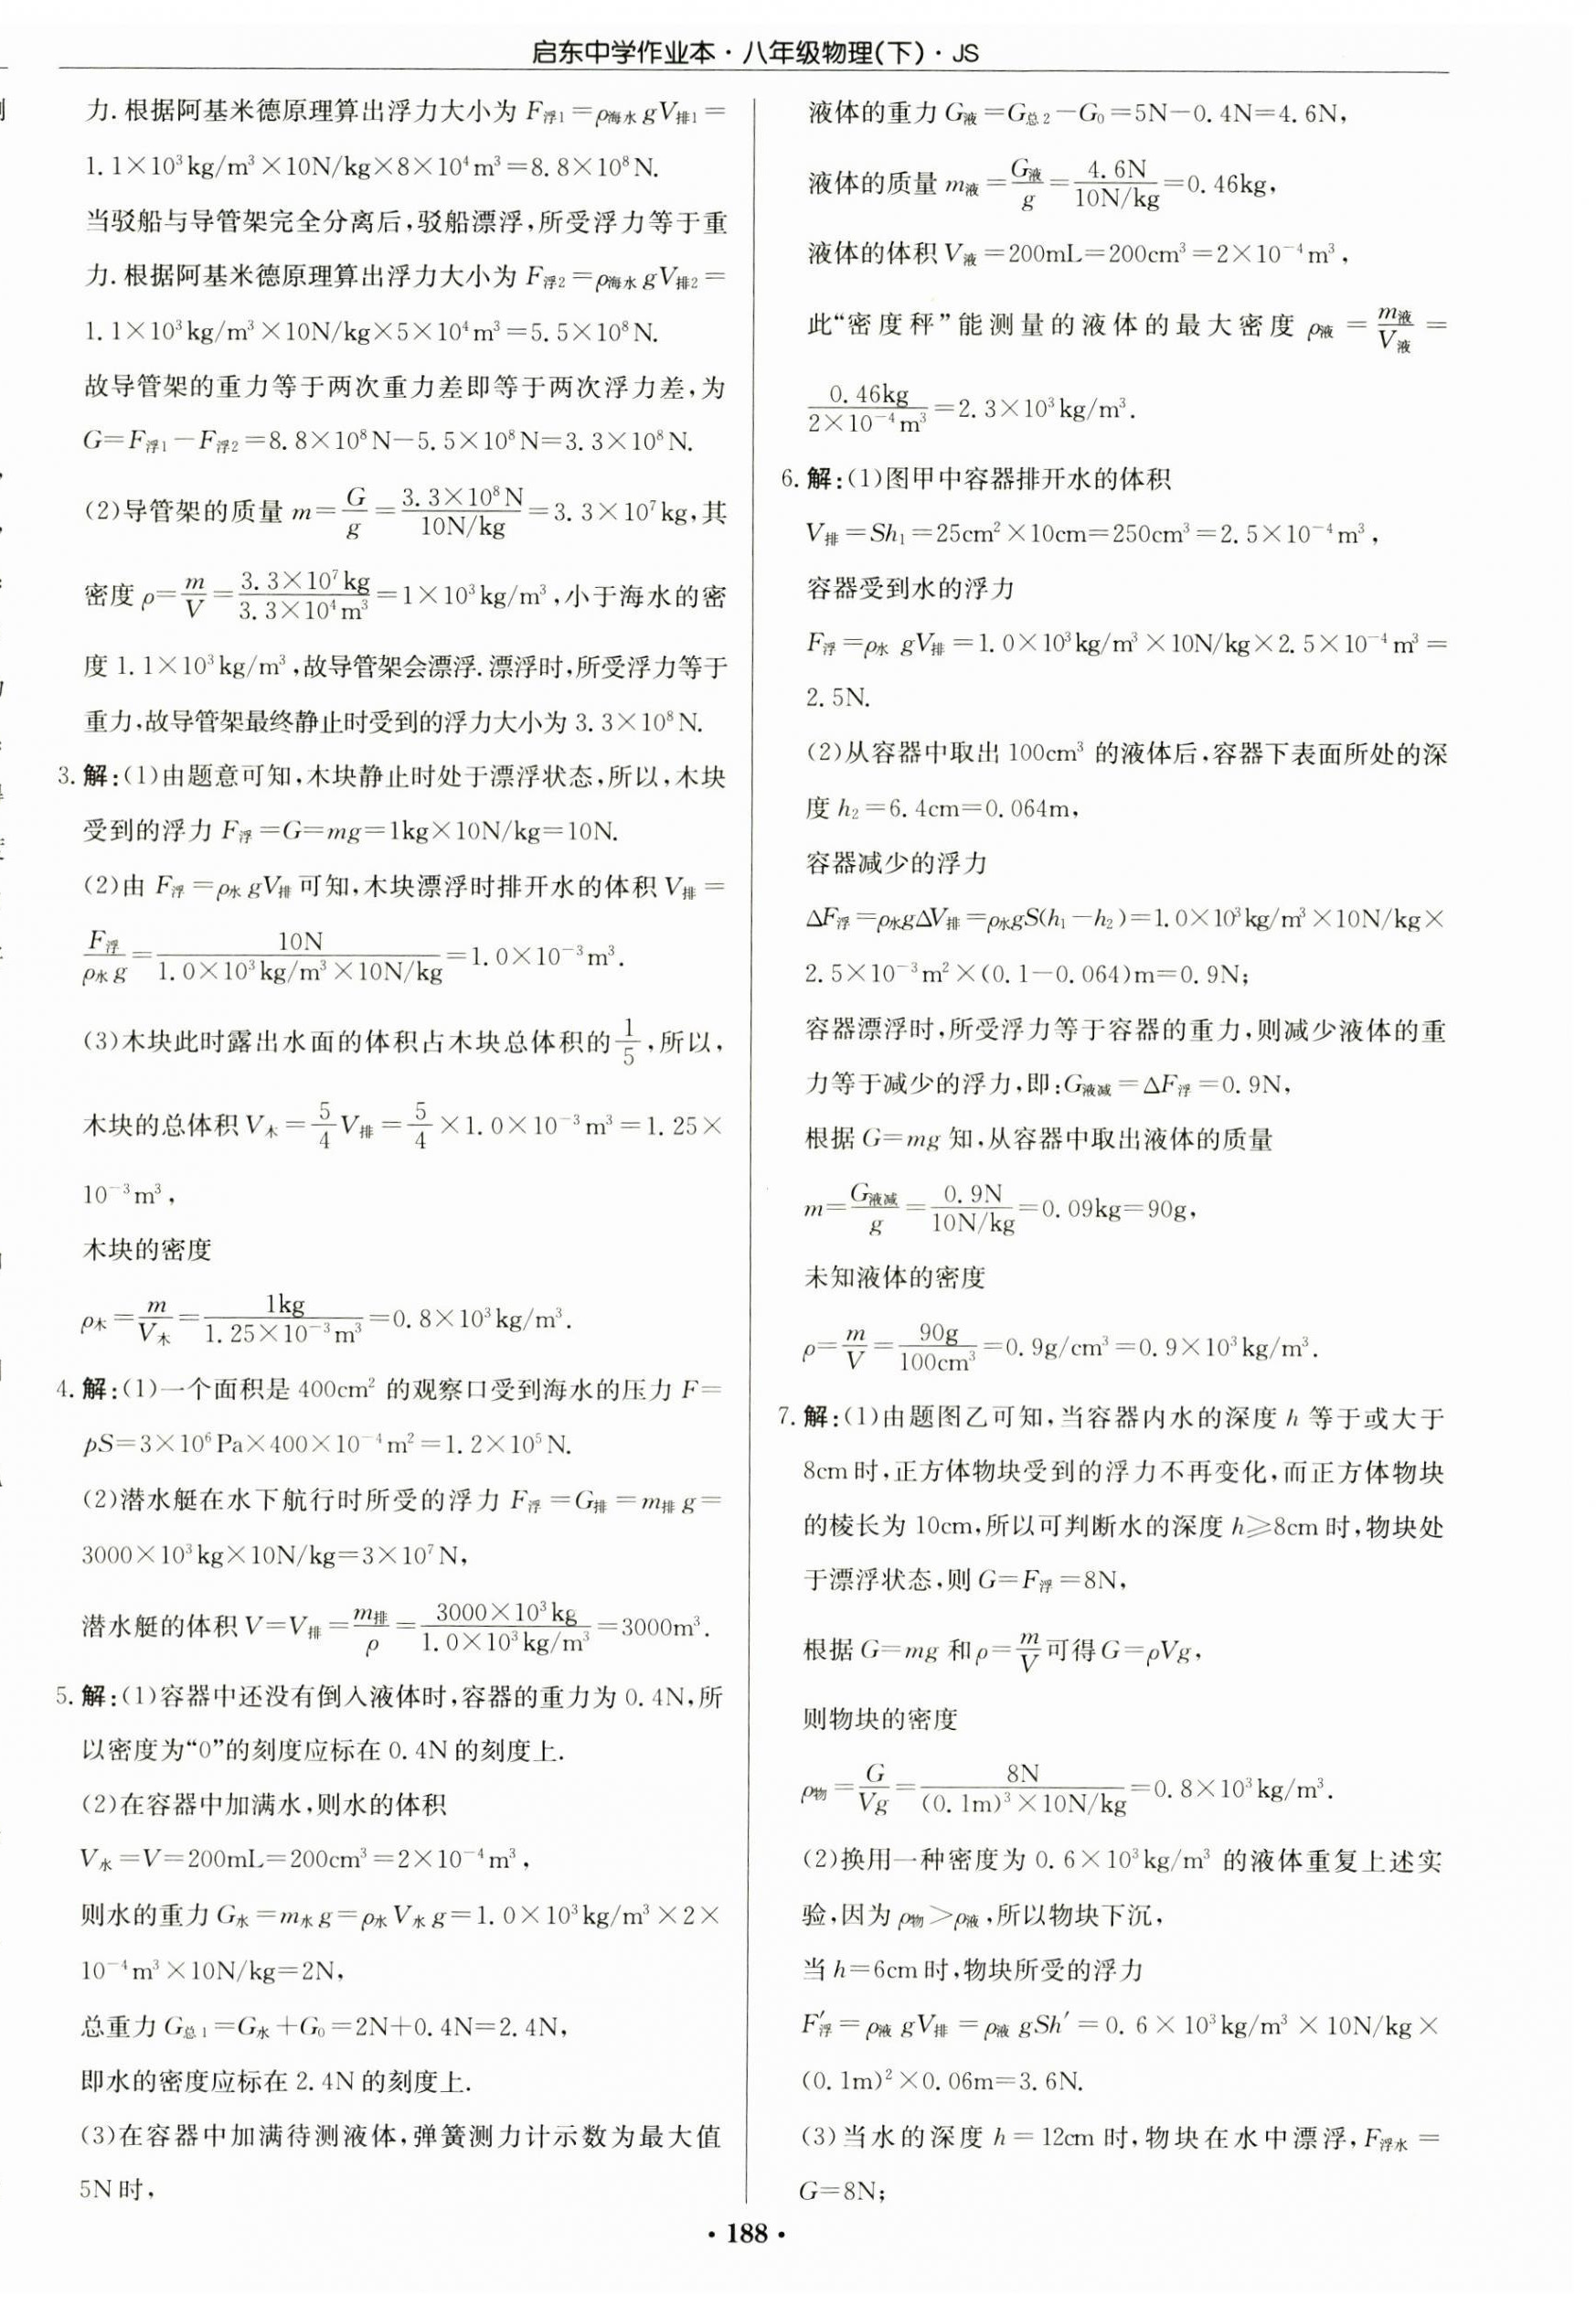 启东中学作业本·八年级物理(下)·JS
力.根据阿基米德原理算出浮力大小为 F浮1=ρ海水gV排1=
1.1×10³kg/m³×10N/kg×8×10⁴m³=8.8×10⁸N.
当驳船与导管架完全分离后,驳船漂浮,所受浮力等于重
力.根据阿基米德原理算出浮力大小为 F浮2=ρ海水gV排2=
1.1×10³kg/m³×10N/kg×5×10⁴m³=5.5×10⁸N.
故导管架的重力等于两次重力差即等于两次浮力差,为
G=F浮1-F浮2=8.8×10⁸N-5.5×10⁸N=3.3×10⁸N.
(2)导管架的质量 m=G/g=3.3×10⁸N/10N/kg=3.3×10⁷kg,其
密度 ρ=m/V=3.3×10⁷kg/3.3×10⁴m³=1×10³kg/m³,小于海水的密
度 1.1×10³kg/m³,故导管架会漂浮.漂浮时,所受浮力等于
重力,故导管架最终静止时受到的浮力大小为 3.3×10⁸N.
3.解:(1)由题意可知,木块静止时处于漂浮状态,所以,木块
受到的浮力 F浮=G=mg=1kg×10N/kg=10N.
(2)由 F浮=ρ水gV排可知,木块漂浮时排开水的体积 V排=
F浮/ρ水g=10N/1.0×10³kg/m³×10N/kg=1.0×10⁻³m³.
(3)木块此时露出水面的体积占木块总体积的1/5,所以,
木块的总体积 V木=5/4V排=5/4×1.0×10⁻³m³=1.25×
10⁻³m³,
木块的密度
ρ木=m/V木=1kg/1.25×10⁻³m³=0.8×10³kg/m³.
4.解:(1)一个面积是 400cm² 的观察口受到海水的压力 F=
pS=3×10⁶Pa×400×10⁻⁴m²=1.2×10⁵N.
(2)潜水艇在水下航行时所受的浮力 F浮=G排=m排g=
3000×10³kg×10N/kg=3×10⁷N,
潜水艇的体积 V=V排=m排/ρ=3000×10³kg/1.0×10³kg/m³=3000m³.
5.解:(1)容器中还没有倒入液体时,容器的重力为 0.4N,所
以密度为“0”的刻度应标在 0.4N 的刻度上.
(2)在容器中加满水,则水的体积
V水=V=200mL=200cm³=2×10⁻⁴m³,
则水的重力 G水=m水g=ρ水V水g=1.0×10³kg/m³×2×
10⁻⁴m³×10N/kg=2N,
总重力 G总1=G水+G₀=2N+0.4N=2.4N,
即水的密度应标在 2.4N 的刻度上.
(3)在容器中加满待测液体,弹簧测力计示数为最大值
5N 时,
液体的重力 G液=G总2-G₀=5N-0.4N=4.6N,
液体的质量 m液=G液/g=4.6N/10N/kg=0.46kg,
液体的体积 V液=200mL=200cm³=2×10⁻⁴m³,
此“密度秤”能测量的液体的最大密度 ρ液=m液/V液=
0.46kg/2×10⁻⁴m³=2.3×10³kg/m³.
6.解:(1)图甲中容器排开水的体积
V排=Sh₁=25cm²×10cm=250cm³=2.5×10⁻⁴m³,
容器受到水的浮力
F浮=ρ水gV排=1.0×10³kg/m³×10N/kg×2.5×10⁻⁴m³=
2.5N.
(2)从容器中取出 100cm³ 的液体后,容器下表面所处的深
度 h₂=6.4cm=0.064m,
容器减少的浮力
ΔF浮=ρ水gΔV排=ρ水gS(h₁-h₂)=1.0×10³kg/m³×10N/kg×
2.5×10⁻³m²×(0.1-0.064)m=0.9N;
容器漂浮时,所受浮力等于容器的重力,则减少液体的重
力等于减少的浮力,即:G液减=ΔF浮=0.9N,
根据 G=mg 知,从容器中取出液体的质量
m=G液减/g=0.9N/10N/kg=0.09kg=90g,
未知液体的密度
ρ=m/V=90g/100cm³=0.9g/cm³=0.9×10³kg/m³.
7.解:(1)由题图乙可知,当容器内水的深度 h 等于或大于
8cm 时,正方体物块受到的浮力不再变化,而正方体物块
的棱长为 10cm,所以可判断水的深度 h⩾8cm 时,物块处
于漂浮状态,则 G=F浮=8N,
根据 G=mg 和 ρ=m/V可得 G=ρVg,
则物块的密度
ρ物=G/Vg=8N/(0.1m)³×10N/kg=0.8×10³kg/m³.
(2)换用一种密度为 0.6×10³kg/m³ 的液体重复上述实
验,因为 ρ物>ρ液,所以物块下沉,
当 h=6cm 时,物块所受的浮力
F′浮=ρ液gV排=ρ液gSh′=0.6×10³kg/m³×10N/kg×
(0.1m)²×0.06m=3.6N.
(3)当水的深度 h=12cm 时,物块在水中漂浮,F浮水=
G=8N;
·188·